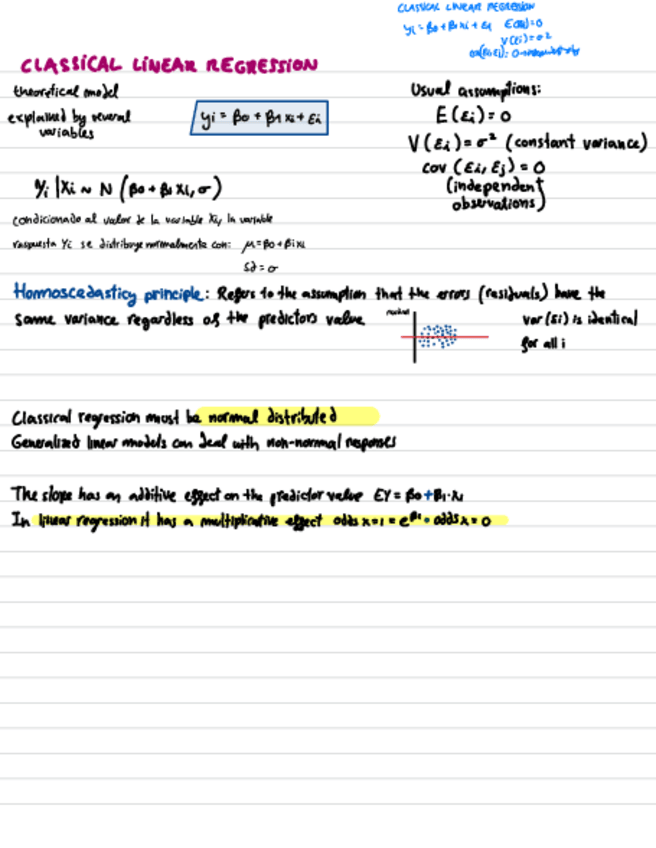 CLASSICAL LINEAR REGRESSION
yi = β0 + β1 xi + εi E(εi)=0
V(εi)=σ2
CLASSICAL LINEAR REGRESSION
theoretical model
explained by several
variables
yi = β0 + β1 xi + εi
Usual assumptions:
E(εi) = 0
V(εi) = σ² (constant variance)
cov (εi, εj) = 0
(independent
observations)
Yi | Xi ~ N (β0 + β1 Xi, σ)
condicionado al valor de la variable Xi, la variable
respuesta Yi se distribuye normalmente con: μ = β0 + β1 xi
Sd = σ
Homoscedasticy principle: Refers to the assumption that the errors (residuals) have the
same variance regardless of the predictors value
var (εi) is identical
for all i
Classical regression must be normal distributed
Generalized linear models can deal with non-normal responses
The slope has an additive effect on the predictor value EY = β0 + β1 · Xi
In linear regression it has a multiplicative effect odds x=1 = e^β1 · odds x=0